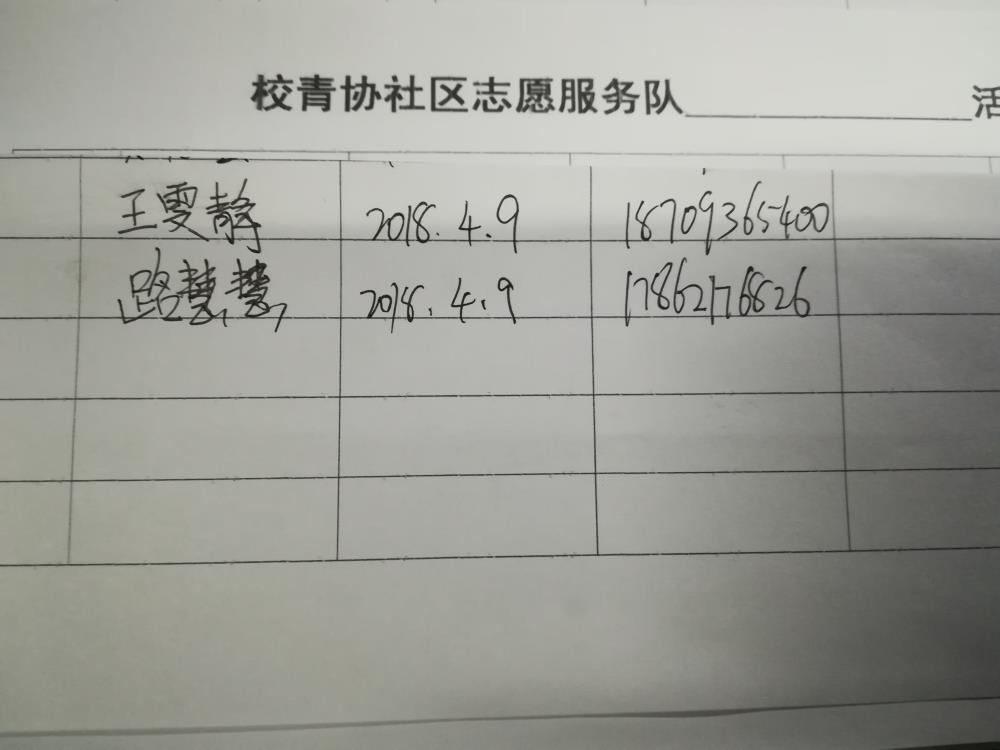 校青协社区志愿服务队__________活
王雯静 2018.4.9 18709365400
路慧慧 2018.4.9 17862176826